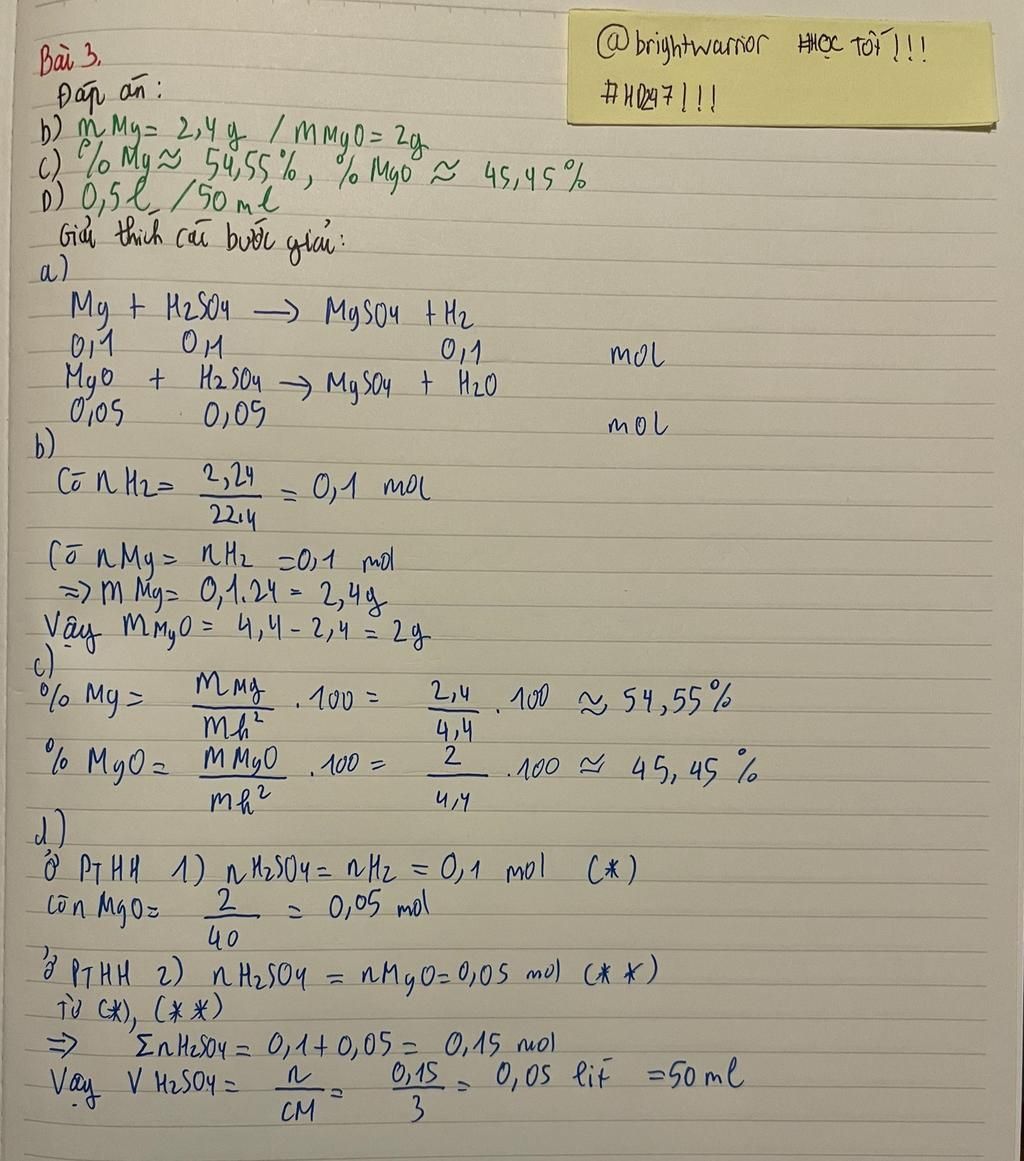 @brightwarrior #HỌC TỐT!!!
#HD247!!!
Bài 3.
Đáp án:
b) mMg= 2,4g / mMgO= 2g
c) %Mg ≈ 54,55%, %MgO ≈ 45,45%
D) 0,5l /50ml
Giải thích các bước giải:
a)
Mg + H2SO4 → MgSO4 + H2
0,1 0,1 0,1 mol
MgO + H2SO4 → MgSO4 + H2O
0,05 0,05 mol
b)
Có nH2= 2,24/22,4 = 0,1 mol
Có nMg= nH2 =0,1 mol
=> mMg= 0,1.24 = 2,4g
Vậy mMgO = 4,4 - 2,4 = 2g
c)
%Mg= mMg/mh² .100 = 2,4/4,4 .100 ≈ 54,55%
%MgO= mMgO/mh² .100 = 2/4,4 .100 ≈ 45,45%
d)
ở PTHH 1) nH2SO4= nH2 = 0,1 mol (*)
có nMgO= 2/40 = 0,05 mol
ở PTHH 2) nH2SO4 = nMgO=0,05 mol (**)
Từ (*), (**)
=> ΣnH2SO4= 0,1+0,05= 0,15 mol
Vậy V H2SO4= n/CM = 0,15/3 = 0,05 lít =50ml